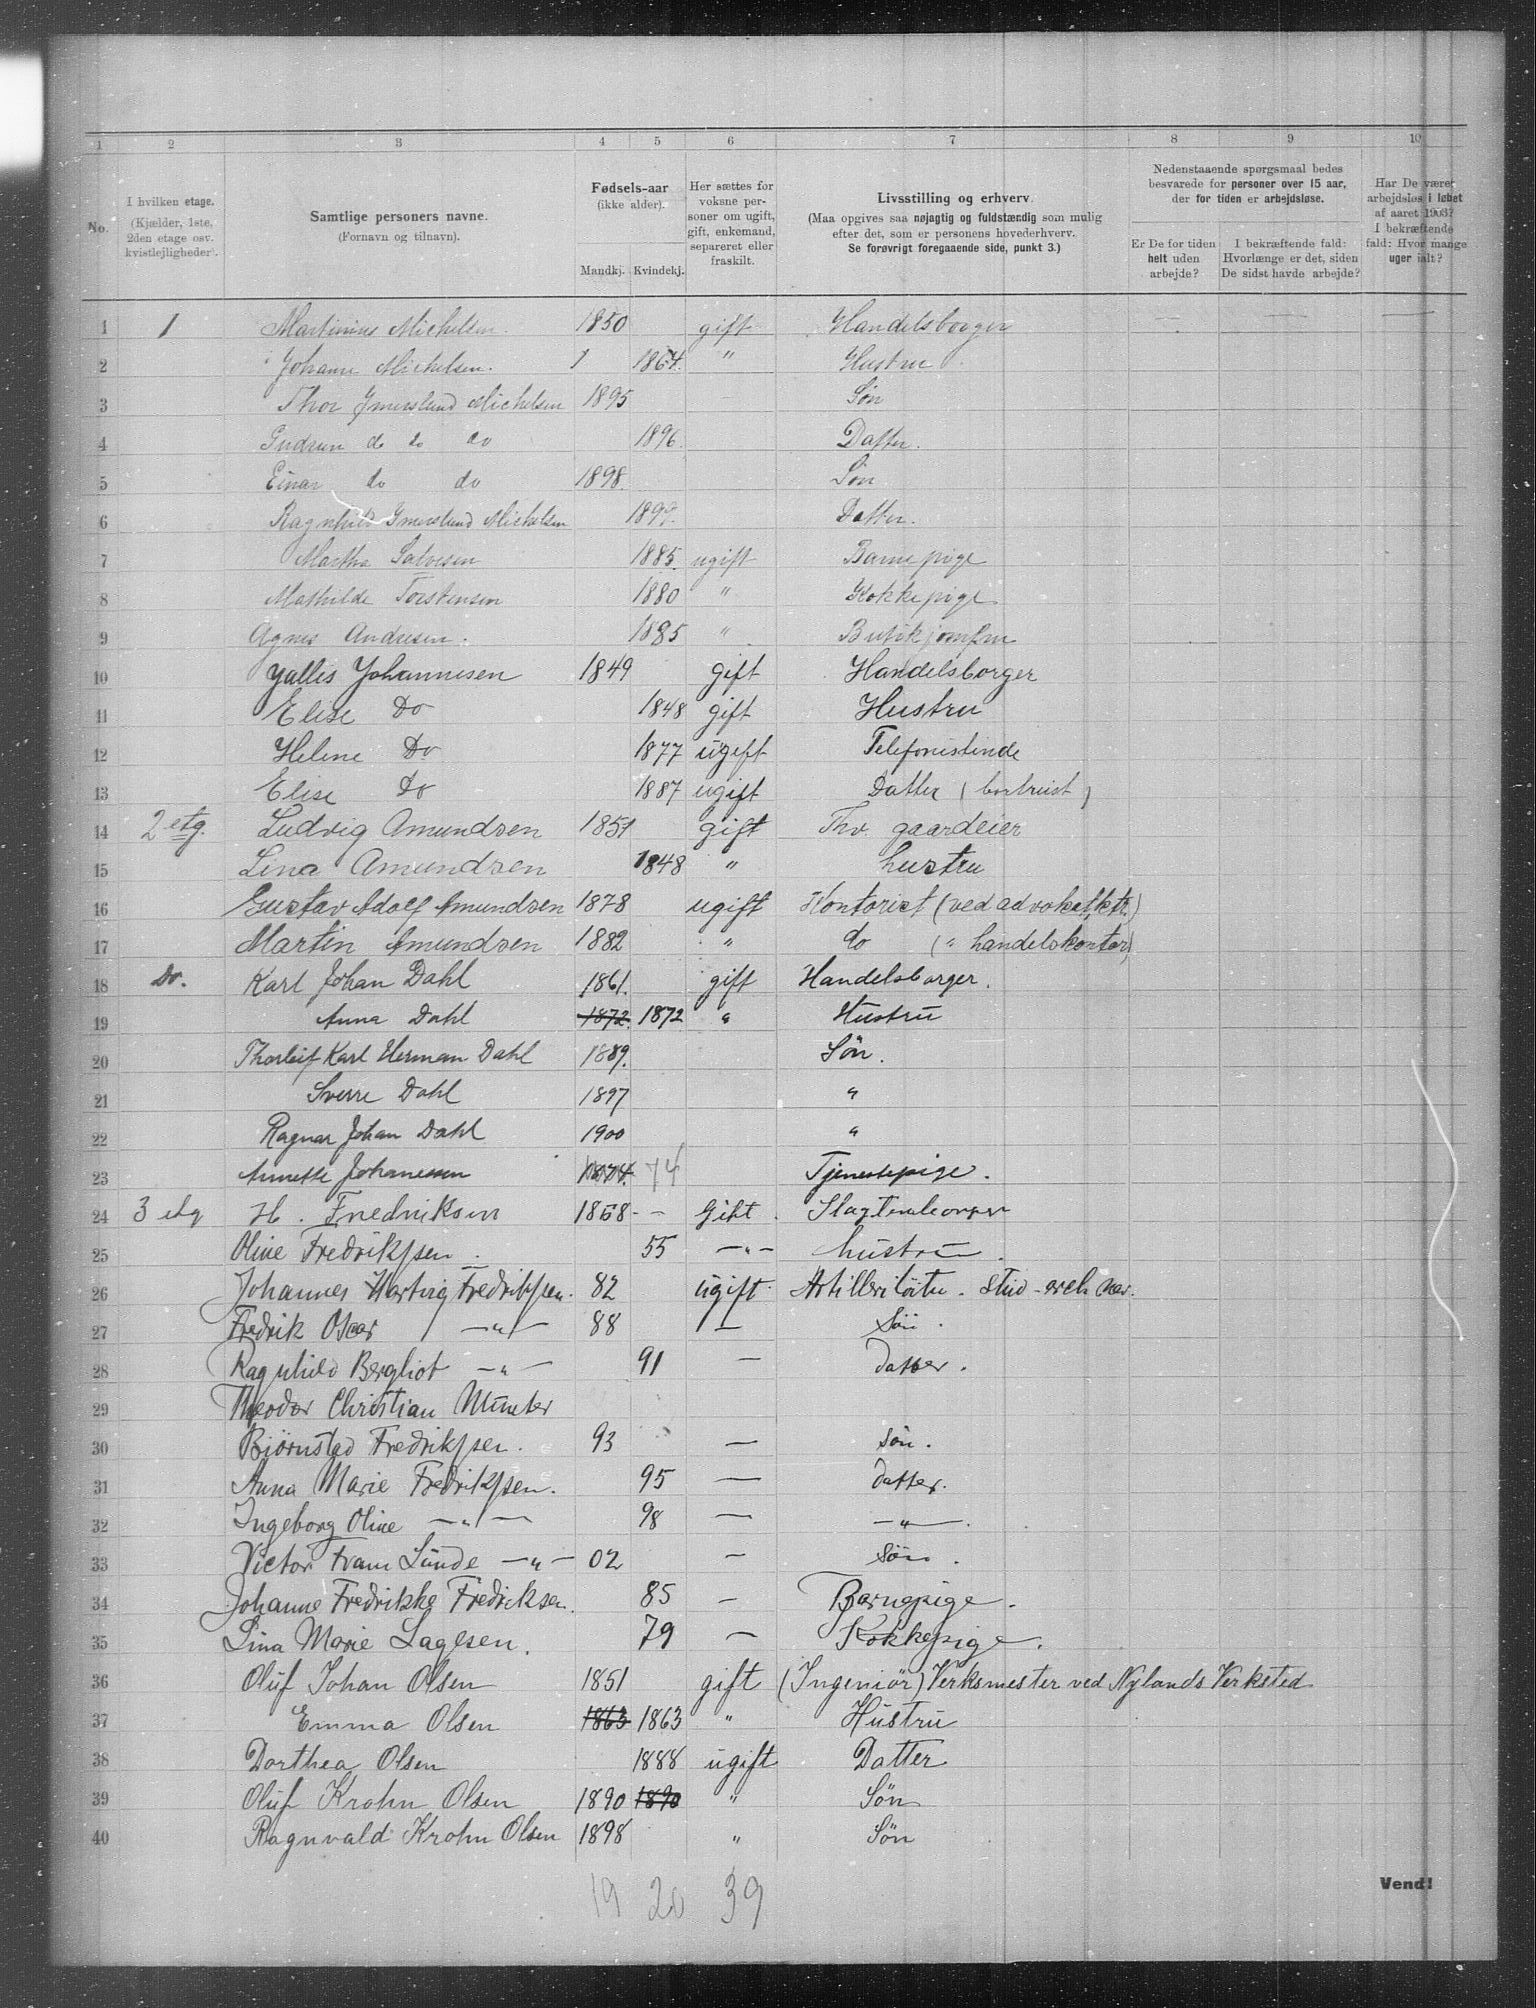 1 2 3 4 5 6 7 8 9 10
No.
I hvilken etage.
(Kjælder, 1ste, 2den etage osv. kvistlejligheder).
Samtlige personers navne.
(Fornavn og tilnavn).
Fødsels-aar
(ikke alder).
Mandkj. Kvindekj.
Her sættes for voksne personer om ugift, gift, enkemand, separeret eller fraskilt.
Livsstilling og erhverv.
(Maa opgives saa nøjagtig og fuldstændig som mulig efter det, som er personens hovederhverv.
Se forøvrigt foregaaende side, punkt 3.)
Nedenstaaende spørgsmaal bedes besvarede for personer over 15 aar, der for tiden er arbejdsløse.
Er De for tiden helt uden arbejde?
I bekræftende fald: Hvorlænge er det, siden De sidst havde arbejde?
Har De været arbejdsløs i løbet af aaret 1903?
I bekræftende fald: Hvor mange uger ialt?
1 1 Martinius Michelsen. 1850 gift Handelsborger — — —
2 Johanne Michelsen. 1 1864. " Hustru
3 Thor Ymerslund Michelsen 1895 Søn
4 Gudrun do do do 1896. Datter.
5 Einar do do 1898. Søn
6 Ragnhild Ymerslund Michelsen 1899. Datter.
7 Martha Salvesen 1885. ugift Barnepige
8 Mathilde Torstensen 1880 " Kokkepige
9 Agnes Andresen. 1885 " Butikjomfru
10 Johannesen 1849 gift Handelsborger
11 Elise Do 1848 gift Hustru
12 Helene Do 1877 ugift Telefonistinde
13 Elise Do 1887 ugift Datter
14 2 etg. Ludvig Amundsen 1851 gift Thv. gaardeier
15 Lina Amundsen 1848 " hustru
16 Gustav Adolf Amundsen 1878 ugift Kontorist (ved advokat.ktr.)
17 Martin Amundsen 1882 " do (" handelskontor)
18 Do. Karl Johan Dahl 1861. gift Handelsborger.
19 Anna Dahl 1872. 1872 " Hustru
20 Thorleif Karl Herman Dahl 1889. Søn.
21 Sverre Dahl 1897 "
22 Ragnar Johan Dahl 1900 "
23 Annette Johanessen 1874. 74 Tjenestepige.
24 3 etg H. Fredriksen 1858 - - Gift.
25 Oline Fredriksen. 55 —"— hustru.
26 Johannes Hartvig Fredriksen. 82 ugift
27 Fredrik Oscar —"— 88 — Søn.
28 Ragnhild Bergliot —"— 91 — datter.
29 Theodor Christian Munster
30 Bjørnstad Fredriksen. 93 — søn.
31 Anna Marie Fredriksen. 95 — datter.
32 Ingeborg Oline —"— 98 — —"—.
33 Victor Fram Lunde —"— 02 — søn.
34 Johanne Fredrikke Fredriksen. 85 — Barnepige.
35 Lina Marie Lagesen. 79 — Kokkepige.
36 Oluf Johan Olsen 1851 gift (Ingeniør) Verksmester ved Nylands Verksted
37 Emma Olsen 1863 1863 " Hustru
38 Dorthea Olsen 1888 ugift Datter
39 Oluf Krohn Olsen 1890 1890 " Søn
40 Ragnvald Krohn Olsen 1898 " Søn
19 20 39
Vend!